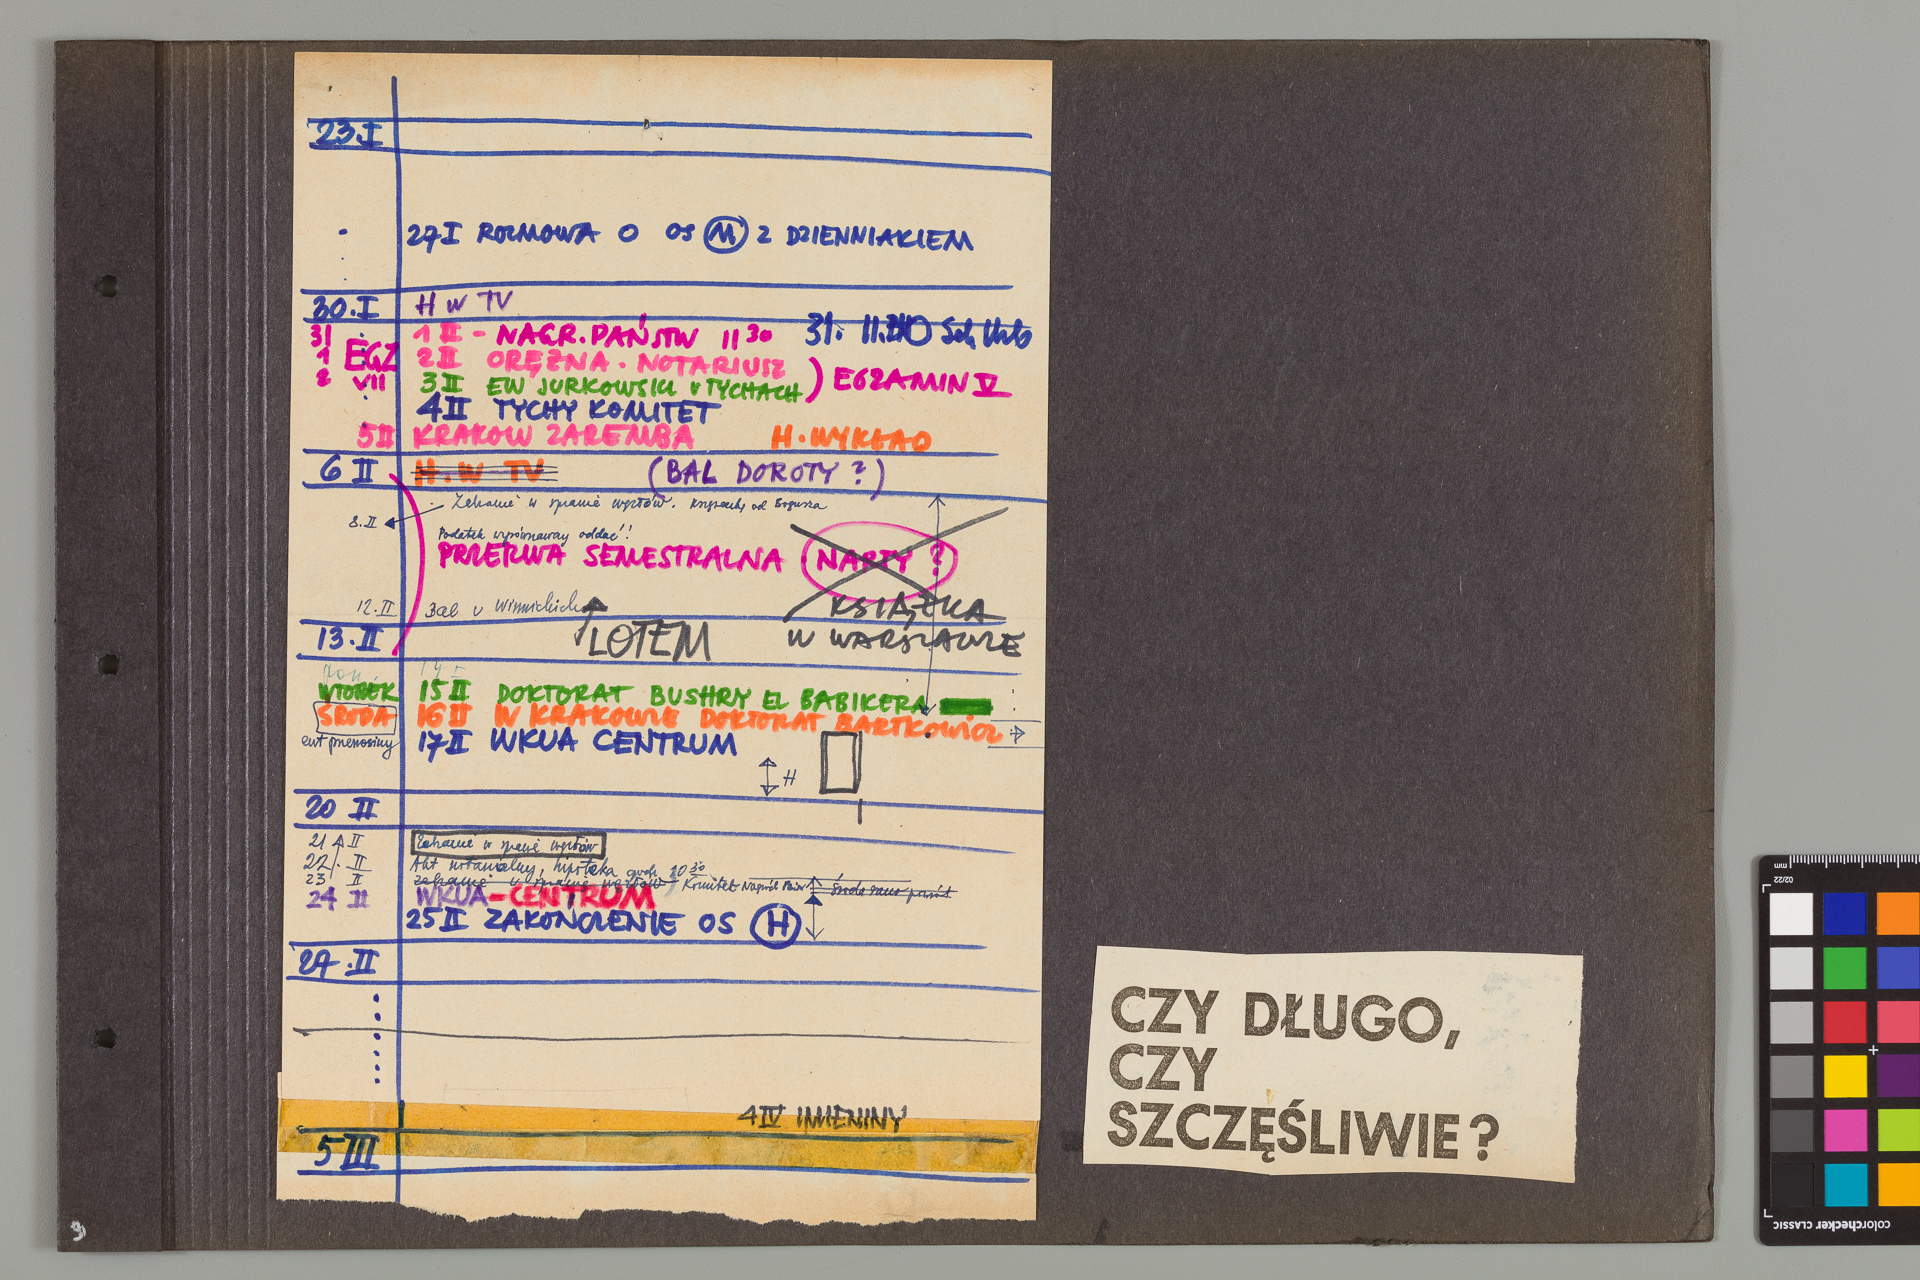 23.I
27 I ROZMOWA O OS (M) Z DZIENNIAKIEM
30.I H W TV
31 1 II - NAGR. PAŃSTW 11 30 31. 11.
1 EGZ 2 II ORĘŻNA. NOTARIUSZ
2 VII 3 II EW JURKOWSKI V TYCHACH ) EGZAMIN V
4 II TYCHY KOMITET
5 II KRAKÓW ZAREMBA H. WYKŁAD
6 II H. W TV (BAL DOROTY ?)
Zebranie w sprawie węzłów. od Bogusza
8.II
Podatek wyrównawczy oddać!
PRZERWA SEMESTRALNA NARTY ?
12.II Bal u Winnickich KSIĄŻKA
13.II LOTEM W WARSZAWIE
pon 14
WTOREK 15 II DOKTORAT BUSHRY EL BABIKERA
ŚRODA 16 II W KRAKOWIE DOKTORAT BARTKOWICZ
ewt przenosiny 17 II WKUA CENTRUM
H
20 II
21 II Zebranie w sprawie węzłów
22 II Akt notarialny, hipoteka godz 10 30
23 II zebranie w sprawie węzłów Komitet Nagród Państw środa rano
24 II WKUA-CENTRUM
25 II ZAKOŃCZENIE OS (H)
27.II
4 IV IMIENINY
5 III
CZY DŁUGO,
CZY
SZCZĘŚLIWIE?
9
mm
02/22
colorchecker CLASSIC